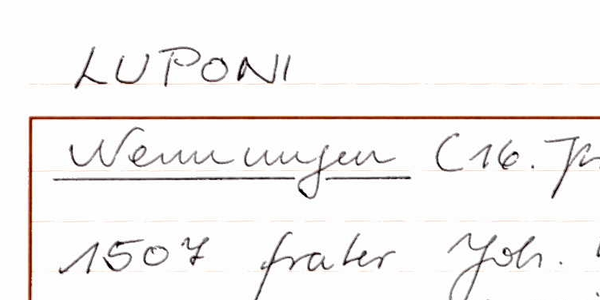 LUPONI
Nennungen (16. Jh
1507 frater Joh.